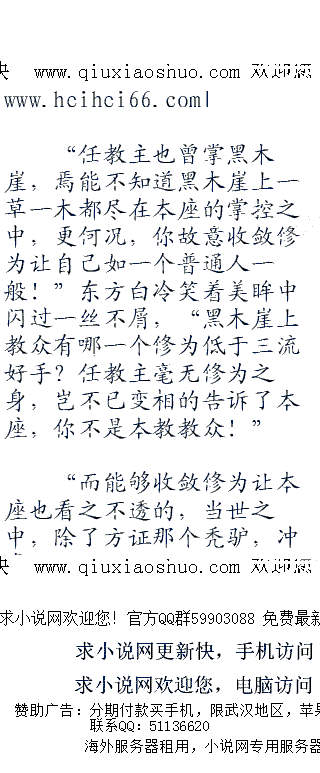 快 www.qiuxiaoshuo.com 欢迎您
www.hcihci66.com|
“任教主也曾掌黑木
崖，焉能不知道黑木崖上一
草一木都尽在本座的掌控之
中，更何况，你故意收敛修
为让自己如一个普通人一
般！” 东方白冷笑着美眸中
闪过一丝不屑， “黑木崖上
教众有哪一个修为低于三流
好手？任教主毫无修为之
身，岂不已变相的告诉了本
座，你不是本教教众！”
“而能够收敛修为让本
座也看之不透的，当世之
中，除了方证那个秃驴，冲
快 www.qiuxiaoshuo.com 欢迎您
求小说网欢迎您! 官方QQ群59903088 免费最新
求小说网更新快，手机访问
求小说网欢迎您，电脑访问
赞助广告：分期付款买手机，限武汉地区，苹果
联系QQ：51136620
海外服务器租用，小说网专用服务器